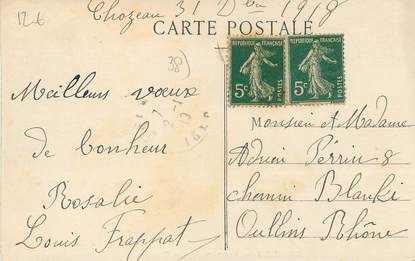 12€
Chozeau 31 Dbre 1918
CARTE POSTALE
38
REPUBLIQUE FRANÇAISE
5c
POSTES
REPUBLIQUE FRANÇAISE
5c
POSTES
Meilleurs vœux
de bonheur
Rosalie
Louis Frappat
Monsieur & Madame
Adrien Perrin 8
chemin Blanki
Oullins Rhône